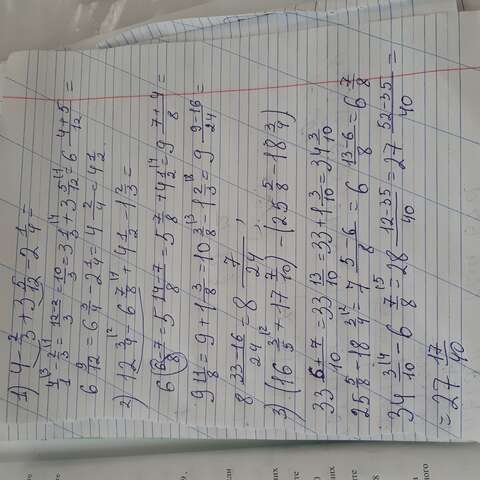 1) 4 - 2/3 + 3 5/12 - 2 1/4 =
4/1 - 2/3 = 12-2/3 = 10/3 = 3 1/3 + 3 5/12 = 6 4+5/12 =
6 9/12 = 6 3/4 - 2 1/4 = 4 2/4 = 4 1/2
2) 12 3/4 - 6 7/8 + 4 1/2 - 1 2/3 =
6 6-7/8 = 5 14-7/8 = 5 7/8 + 4 1/2 = 9 7+4/8 =
9 11/8 = 9 + 1 3/8 = 10 3/8 - 1 2/3 = 9 9-16/24 =
8 33-16/24 = 8 7/24;
3) (16 3/5 + 17 7/10) - (25 5/8 - 18 3/4)
33 6+7/10 = 33 13/10 = 33 + 1 3/10 = 34 3/10
25 5/8 - 18 3/4 = 7 5-6/8 = 6 13-6/8 = 6 7/8
34 3/10 - 6 7/8 = 28 12-35/40 = 27 52-35/40 =
= 27 17/40